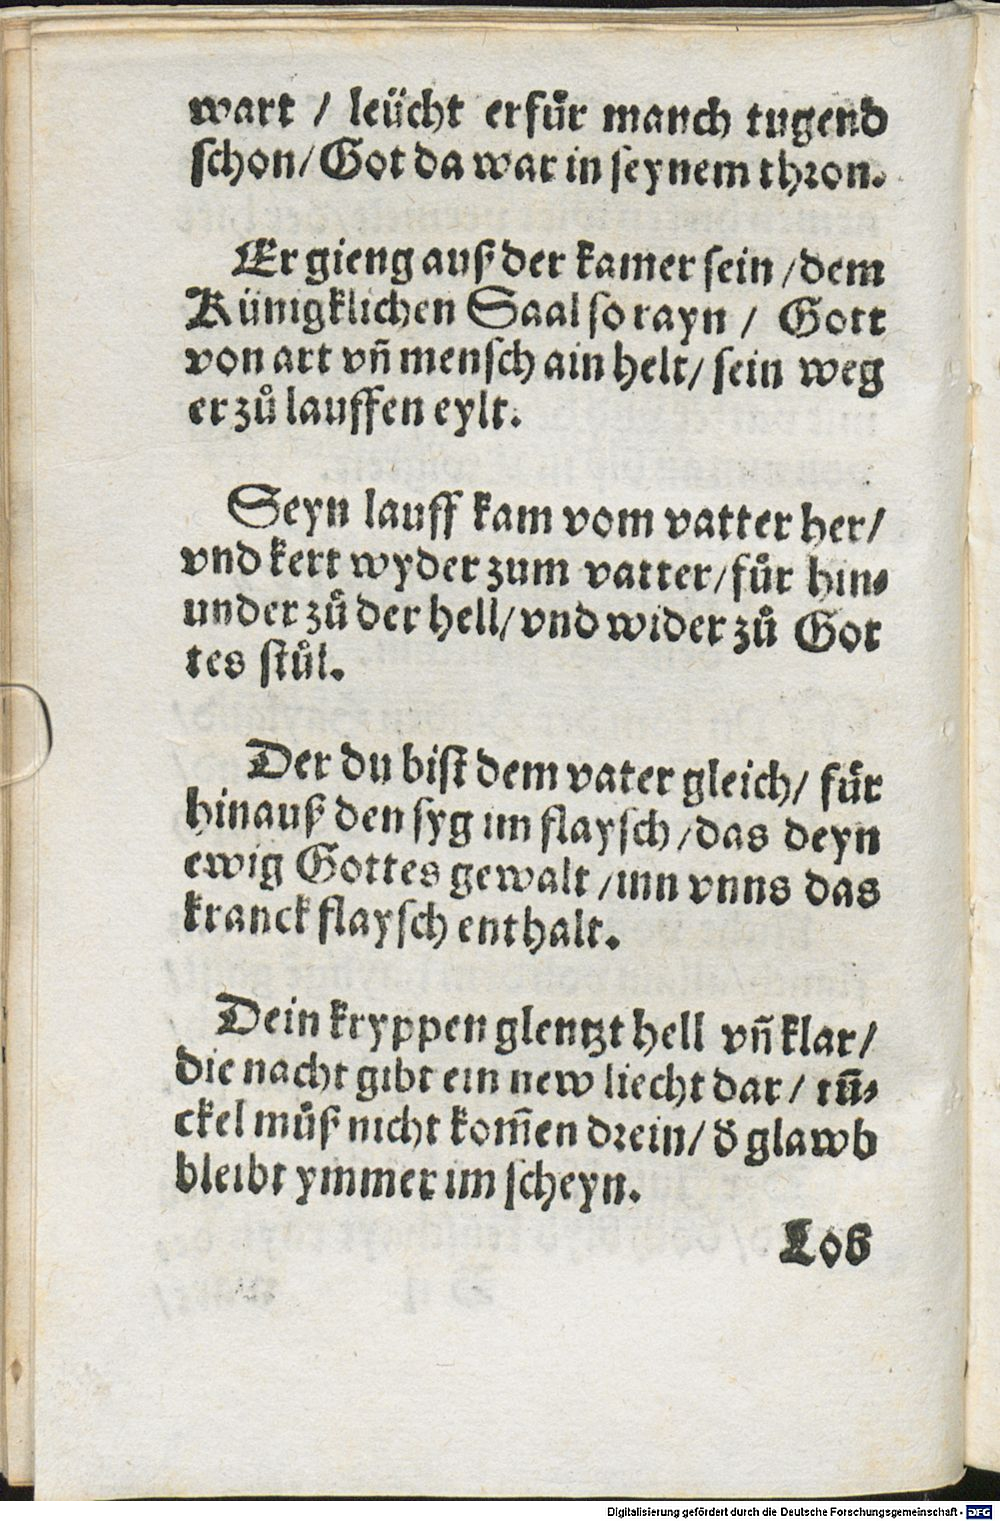 wart / leücht erfůr manch tugend
schon/ Got da war in seynem thron.
Er gieng auß der kamer sein /dem
Künigklichen Saal so rayn / Gott
von art vñ mensch ain helt/ sein weg
er zů lauffen eylt.
Seyn lauff kam vom vatter her/
vnd kert wyder zum vatter/fůr hin⸗
under zů der hell/vnd wider zů Got
tes stůl.
Der du bist dem vater gleich/ fůr
hinauß den syg im flaysch /das deyn
ewig Gottes gewalt /inn vnns das
kranck flaysch enthalt.
Dein kryppen glentzt hell vñ klar/
die nacht gibt ein new liecht dar / tũ⸗
ckel můß nicht kom̃en drein/ d̓ glawb
bleibt ymmer im scheyn.
Lob
Digitalisierung gefördert durch die Deutsche Forschungsgemeinschaft - DFG